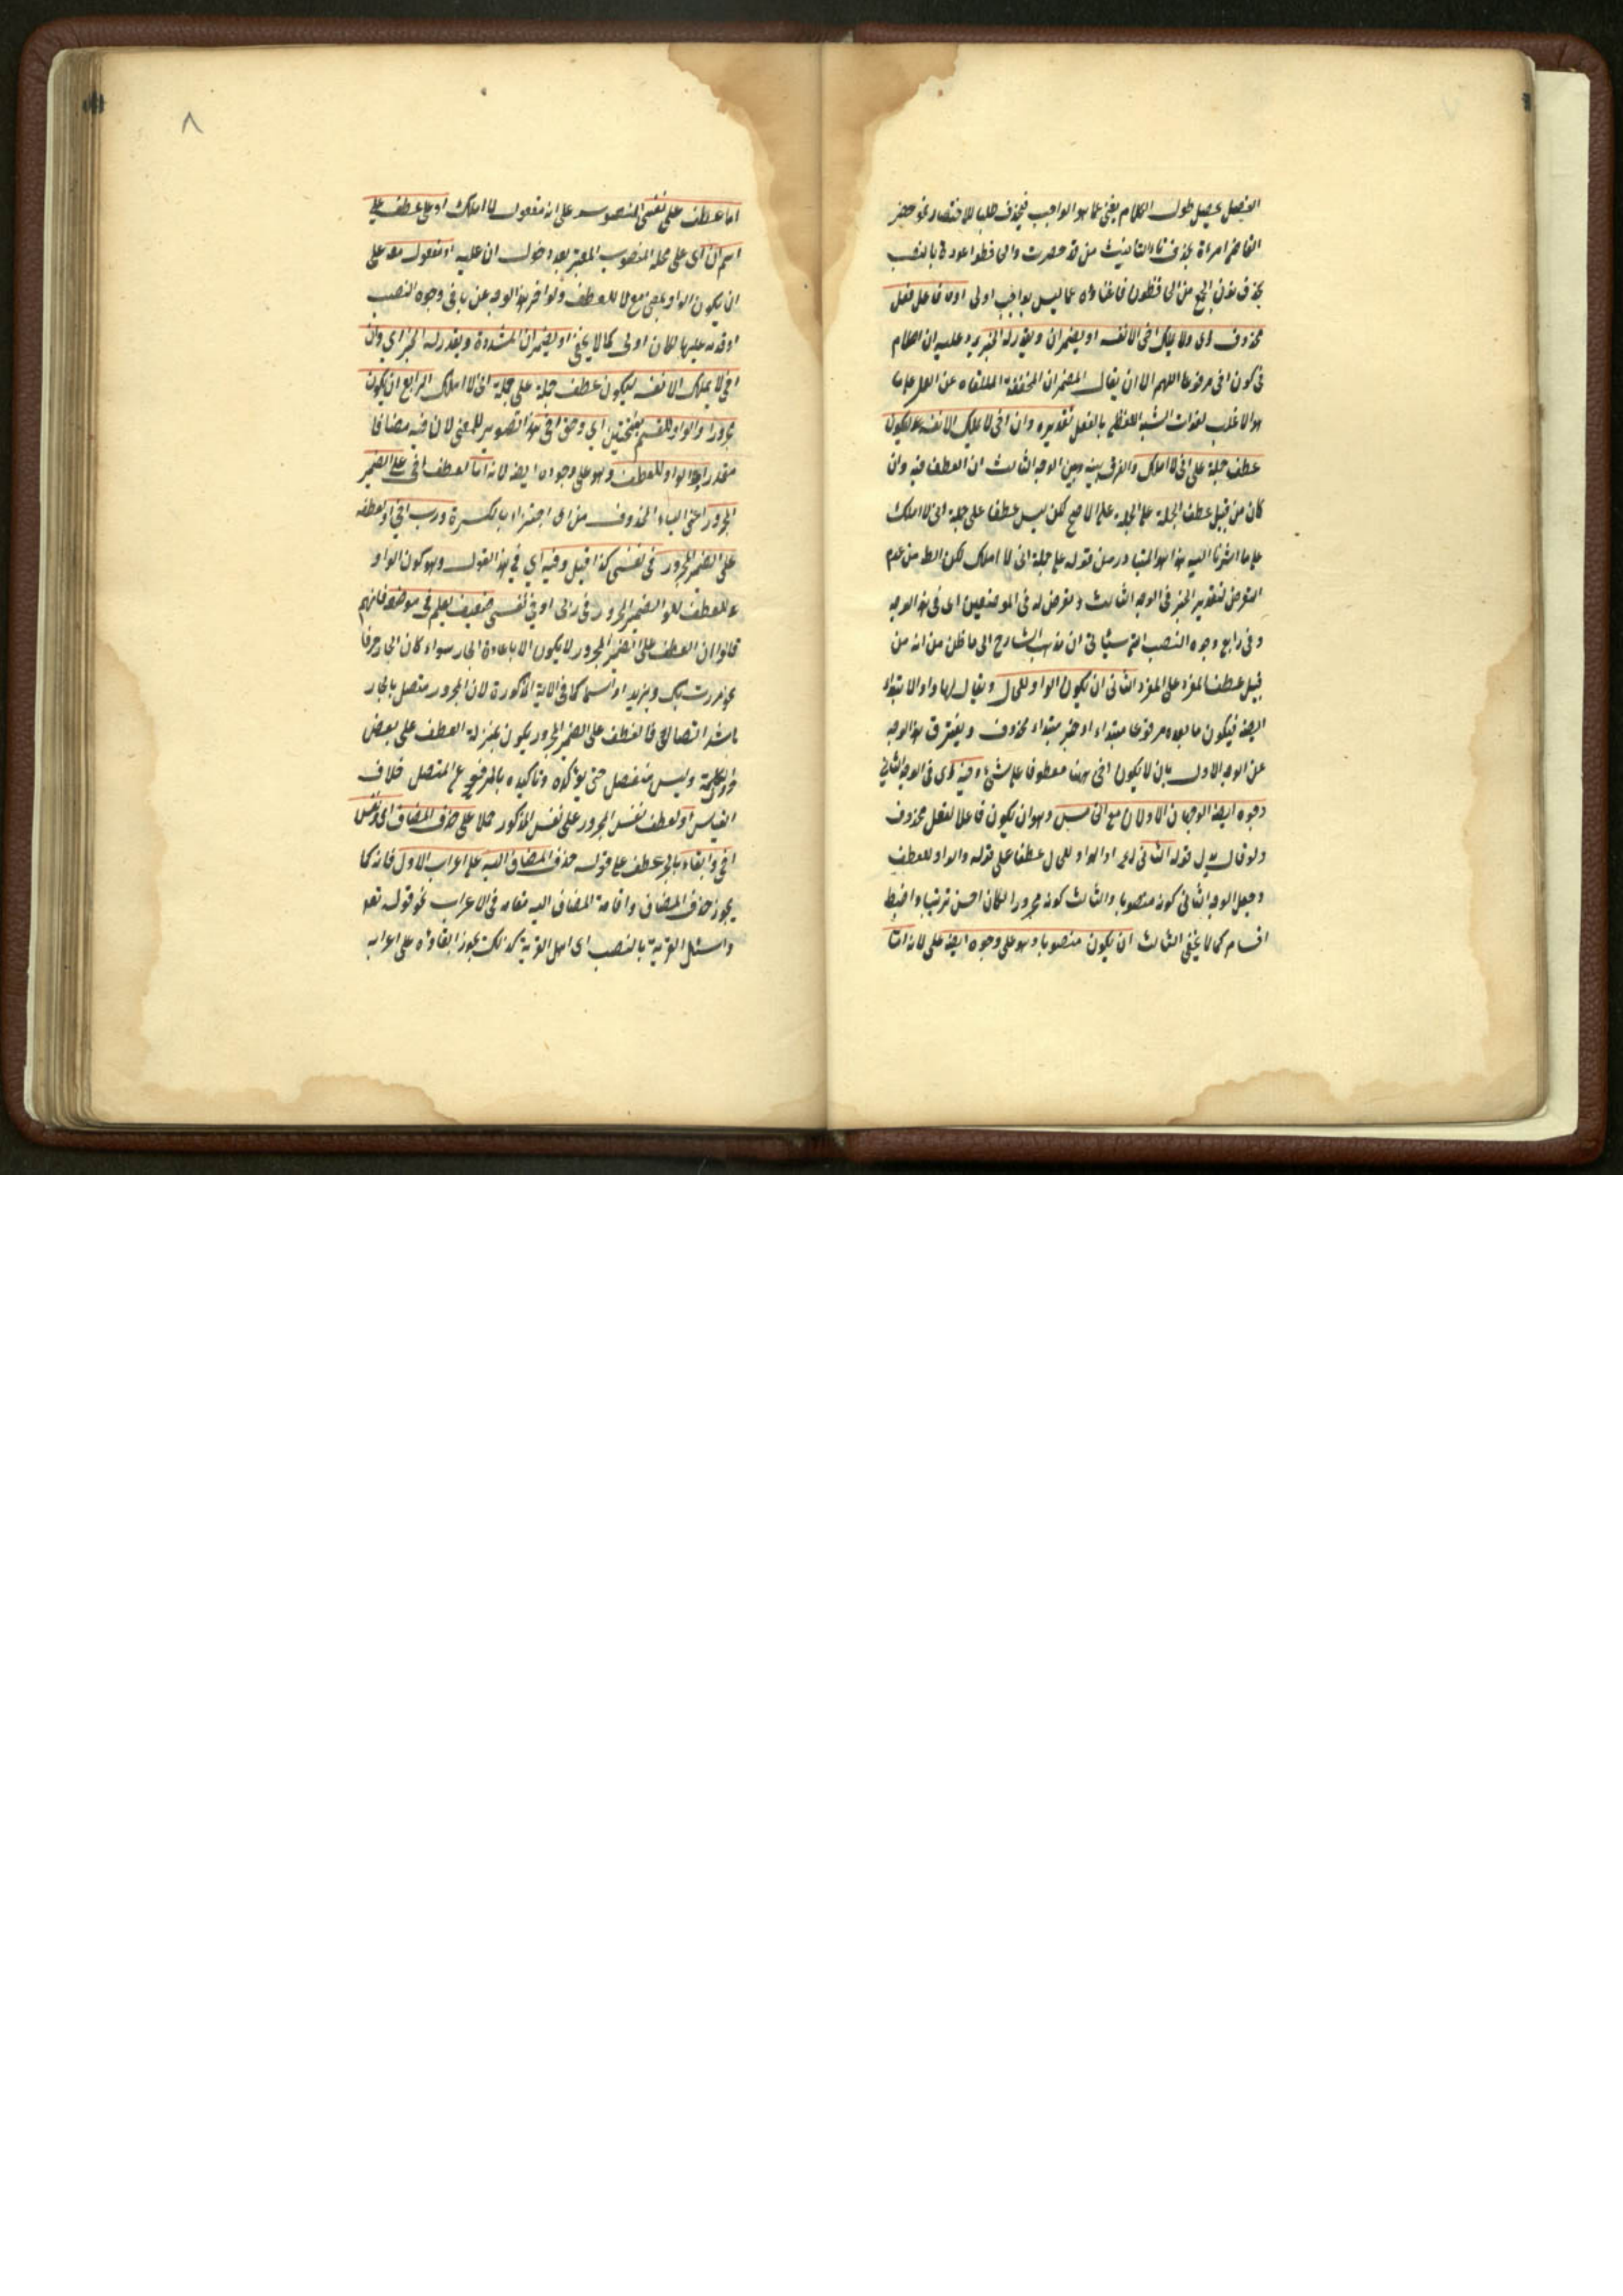 الفصل يحصل طول الكلام يغني عما هو الواجب فيحذف طلبا للاختصار نحو حضر
القاضي امرأة بحذف تاء التانيث من قد حضرت والحافظوا عورة بالنصب
بحذف نون الجمع من الحافظون فاغناؤه عما ليس بواجب اولى اوانه فاعل فعل
محذوف اى ولا يملك اخى الا نفسه او يضمر ان ويقدر له الخبر يرد عليه ان الكلام
فى كون اخى مرفوعا اللهم الا ان يقال المضمر ان المخففة الملقاه عن العمل على ما
هو الاغلب لفوات الشبه اللفظى بالفعل تقديره وان اخى لا يملك الا نفسه فيكون
عطف جملة على انى لا املك والفرق بينه وبين الوجه الثالث ان العطف فيه وان
كان من قبيل عطف الجملة على الجملة على الاصح لكن ليس عطفا على جملة انى لا املك
على ما اشرنا اليه هذا هو المتبادر من قوله على جملة انى لا املك لكن الظ من عدم
التعرض لتقدير الخبر فى الوجه الثالث وتعرض له فى الموضعين اى فى هذا الوجه
وفى رابع وجوه النصب الذى سياتى ان مذهب الشارح الى ما ظن من انه من
قبيل عطف المفرد على المفرد الثانى ان يكون الواو للحال ويقال لها واو الابتداء
ايضا فيكون ما بعده مرفوعا مبتداء او خبر مبتداء محذوف ويفترق هذا الوجه
عن الوجه الاول بان لا يكون اخى ههنا معطوفا على شئ وفيه اى فى الوجه الثانى
وجوه ايضا الوجهان الاولان مع الخامس وهو ان يكون فاعلا لفعل محذوف
ولو قال بدل قوله الثانى الخ او الواو للحال عطفا على قوله والواو للعطف
وجعل الوجه الثانى كونه منصوبا والثالث كونه مجرورا لكان احسن ترتيبا واضبط
اقسام كما لا يخفى الثالث ان يكون منصوبا وهو على وجوه ايضا على لانه اما
٨
اما عطف على نفسى المنصوب على انه مفعول لا املك او على عطف على
اسم ان اى على محله المنصوب المعتبر بعد دخول ان عليه او مفعول معه على
ان يكون الواو بمعنى مع لا للعطف ولو اخر هذا الوجه عن باقى وجوه النصب
او قدمه عليها لكان اولى كما لا يخفى او يضمر ان المشددة ويقدر له الخبر اي وان
اخى لا يملك الا نفسه ليكون عطف جملة على جملة انى لا املك الرابع ان يكون
مجرورا والواو للقسم بمعنى اي وحق اخى هذا تصوير للمعنى لان فيه مضافا
مقدرا والواو للعطف وهو على وجوده ايضا لانه اما لعطف اخى على الضمير
المجرور اعنى الياء المحذوف من اجتزاء بالكسرة ورب اخى او لعطفه
على الضمير المجرور فى نفسى كذا قيل وفيه اي فى هذا القول وهو كون الواو
للعطف الضمير المجرور فى ربى او فى نفسى ضعيف يعلم فى موضعه فانهم
قالوا ان العطف على الضمير المجرور لا يكون الا باعادة الجار سواء كان الجار حرفا
نحو مررت بك وبزيد او اسما كما فى الاية المذكورة لان المجرور متصل بالجار
باشد اتصال فالعطف على الضمير المجرور يكون بمنزلة العطف على بعض
حروف الكلمة وليس منفصل حتى يؤكده وتاكيده بالمرفوع المتصل خلاف
القياس او لعطف نفس المجرور على نفس المذكور حملا على حذف المضاف اى ونفس
اخى وابقاءه بالجر عطف على قوله حذف المضاف اليه على اعراب الاول فانه كما
يجوز حذف المضاف واقامة المضاف اليه مقامه فى الاعراب نحو قوله تعه
واسئل القرية بالنصب اى اهل القرية كذلك يجوز ابقاؤه على اعرابه